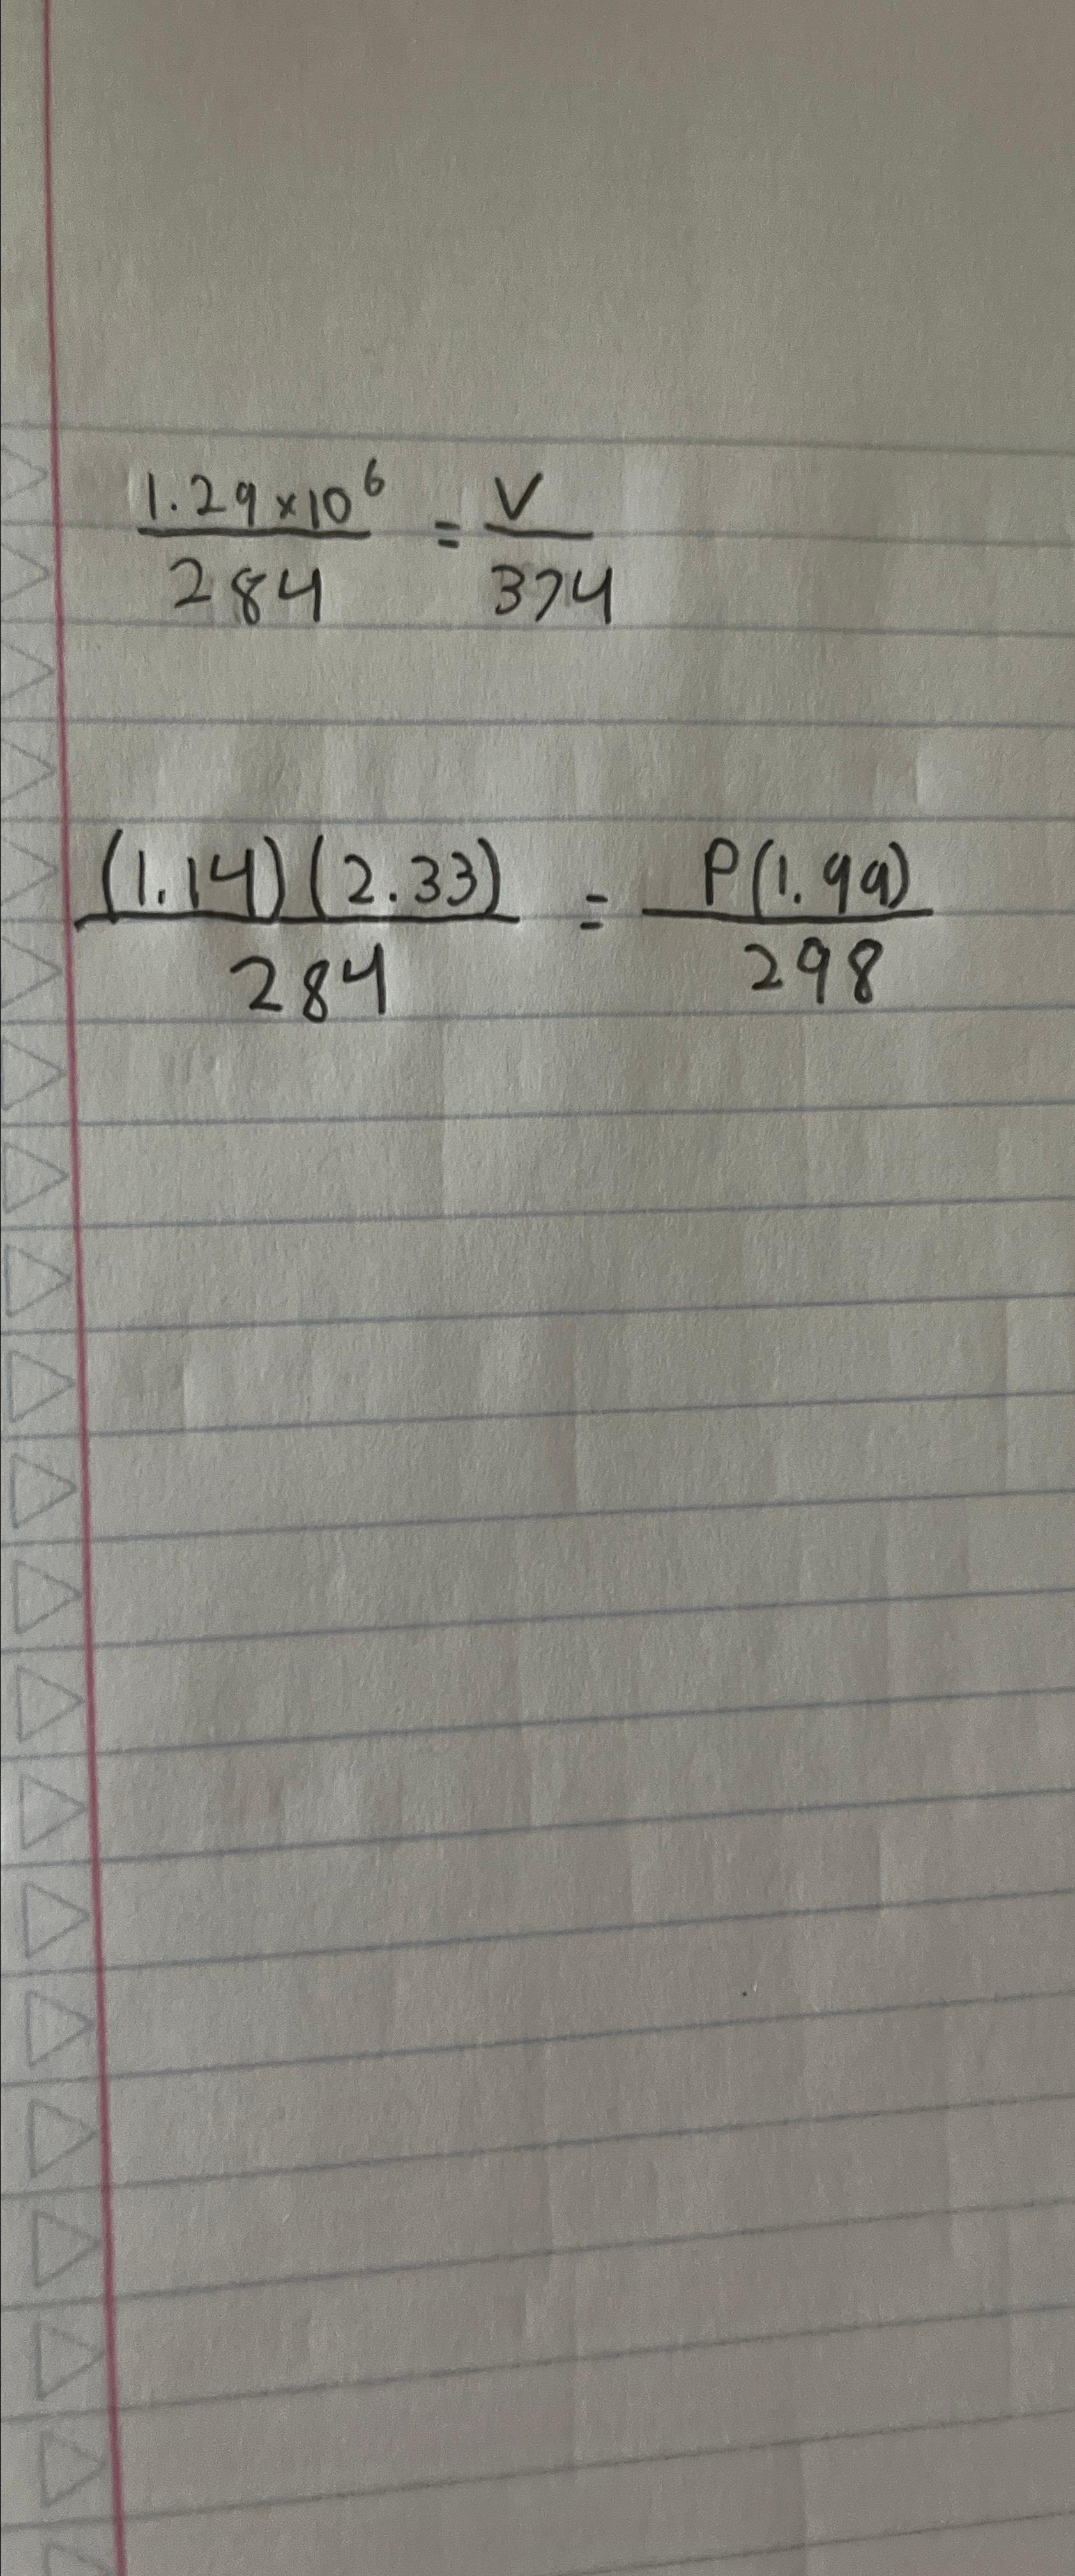 1.29×10⁶/284 = V/374
(1.14)(2.33)/284 = P(1.99)/298